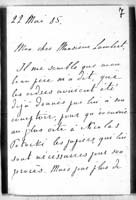 7
22 Mai 85.
Mon cher Monsieur Lambert,
Il me semble que mon
père m'a dit, que
les ordres avaient été
déjà donnés par lui à son
comptoir, pour qu'on envoie
au plus vite à Nicolas
Patocki les papiers qui lui
sont nécessaires pour son
procès. Mais pour plus de